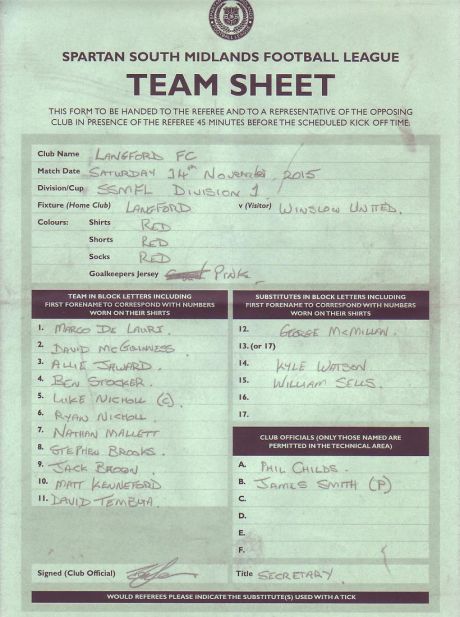 SPARTAN SOUTH MIDLANDS FOOTBALL LEAGUE
TEAM SHEET
THIS FORM TO BE HANDED TO THE REFEREE AND TO A REPRESENTATIVE OF THE OPPOSING
CLUB IN PRESENCE OF THE REFEREE 45 MINUTES BEFORE THE SCHEDULED KICK OFF TIME
Club Name LANGFORD FC
Match Date SATURDAY 14TH NOVEMBER 2015
Division/Cup SSMFL DIVISION 1
Fixture (Home Club) LANGFORD v (Visitor) WINSLOW UNITED.
Colours: Shirts RED
Shorts RED
Socks RED
Goalkeepers Jersey PINK
TEAM IN BLOCK LETTERS INCLUDING
FIRST FORENAME TO CORRESPOND WITH NUMBERS
WORN ON THEIR SHIRTS
1. MARCO DE LAURI
2. DAVID MCGUINNESS
3. ALLIE JAWARD.
4. BEN STOCKER.
5. LUKE NICHOLL (C)
6. RYAN NICHOLL.
7. NATHAN MALLETT
8. STEPHEN BROOKS.
9. JACK BROWN
10. MATT KENNEFORD
11. DAVID
SUBSTITUTES IN BLOCK LETTERS INCLUDING
FIRST FORENAME TO CORRESPOND WITH NUMBERS
WORN ON THEIR SHIRTS
12. GEORGE MCMILLAN.
13. (or 17)
14. KYLE WATSON
15. WILLIAM SELLS.
16.
17.
CLUB OFFICIALS (ONLY THOSE NAMED ARE
PERMITTED IN THE TECHNICAL AREA)
A. PHIL CHILDS.
B. JAMES SMITH (P)
C.
D.
E.
F.
Signed (Club Official)
Title SECRETARY.
WOULD REFEREES PLEASE INDICATE THE SUBSTITUTE(S) USED WITH A TICK